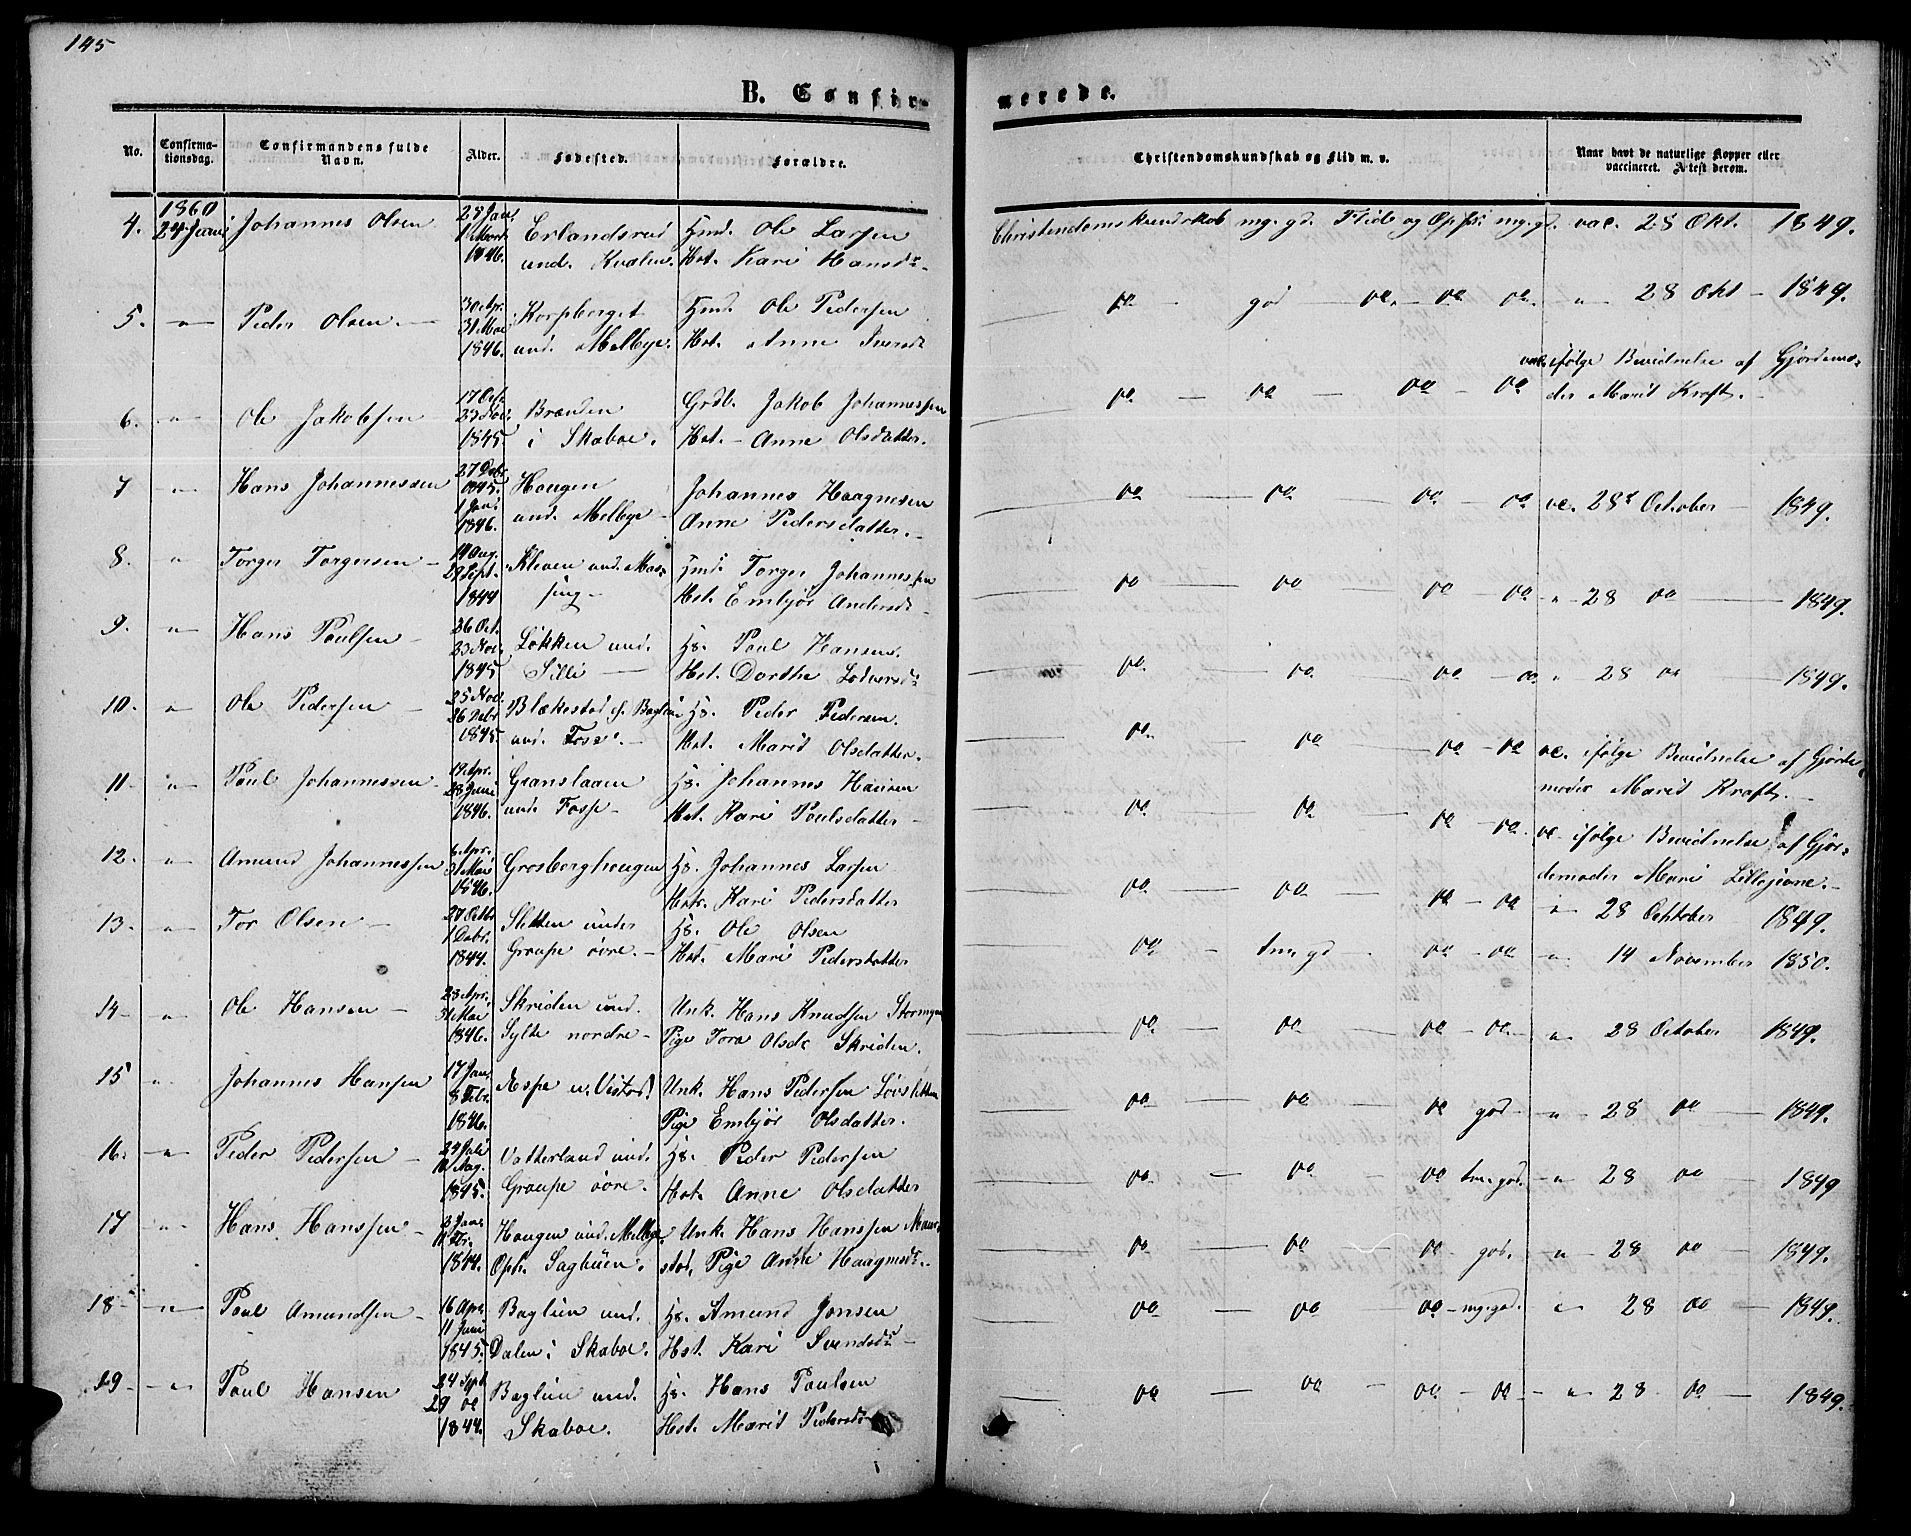 145
B. Confir-
merede.
No.
Confirma-
tionsdag.
Confirmandens fulde
Navn.
Alder.
Fødested.
Forældre.
Christendomskundskab og Flid m. v.
Naar havt de naturlige Kopper eller
vaccineret. Attest derom.
4. 1860 24 Juni Johannes Olsen 1846. Erlandsrud Hmd. Ole Larsen Christendomskundskab mg. gd. Flid og Opfs: mg. gd. vac. 28 Okt. 1849.
und. Kvalen. Hst. Kari Hansdr
5. " Peder Olsen 30 Apr. Korpberget Hmd. Ole Pedersen do god do do do " 28 Okt 1849.
31 Mai 1846. und. Melbye. Hst. Anne Iversdr
6. " Ole Jakobsen 1845 Brænden Grdb. Jakob Johannessen do do do do vac. ifølge Bevidnelse af Gjordemo-
i Skaboe. Hst. Anne Olsdatter. der Marit Kraft.
7 " Hans Johannessen 27 Debr. 1845. Hougen Johannes Haagnesen do do do do vc. 28d October 1849.
1 Jan: 1846. und. Melbye Anne Pedersdatter.
8. " Torger Torgersen 29 Sept. 1844 Kleven und. Mos- Hmd. Torger Johannessen do do do do " 28 do 1849.
sing Hst. Embjør Andersdr
9. " Hans Poulsen 26 Oct. 23 Nov. 1845 Løkken und. Hs. Poul Hansen. do do do do " 28 do 1849.
Silli Hst. Dorthe Lodversdr
10. " Ole Pedersen 25 Nov. 26 Debr 1845. Blækestad Baglien Hs. Peder Pedersen. do do do do vc. ifølge Bevidnelse af Gjorde-
und. Fosse. Hst. Marit Olsdatter. moder Marit Kraft.
11. " Poul Johannessen 19 Apr. 28 Juni 1846. Granslaaen Hs. Johannes Hansen do do do do vc. ifølge Bevidnelse af Gjor-
und. Fosse Hst. Kari Poulsdatter demoder Mari
12. " Amund Johannessen 31 Mai 1846. Grosberghougen Hs. Johannes Larsen do do do do " 28 October 1849.
Hst. Kari Pedersdatter
13. " Tor Olsen 1 Debr. 1844. Sletten under Hs. Ole Olsen do tm. gd do do " 14 November 1850.
Graupe øvre. Hst. Mari Pedersdatter
14 " Ole Hansen 23 Apr. 31 Mai 1846. Skriden und. Unk. Hans Knudsen Stormyra do do do do " 28 October 1849.
Sylte nordre Pige Tora Olsdr Skriden.
15 " Johannes Hansen 17 Jan. 8 Febr. 1846. Aspe u. Vistad Unk. Hans Pedersen Løvsletten do do do god " 28 do 1849.
Pige Embjør Olsdatter.
16. " Peder Pedersen 24 Juli 10 Aug. 1845. Vatterland und. Hs. Peder Pedersen do do do tm. god. " 28 do 1849
Graupe øvre. Hst. Anne Olsdatter
17 " Hans Hanssen 1844. Hougen und. Melbye. Unk. Hans Hanssen Maur- do do do god. " 28 do 1849.
Oph. Saghuen. stad, Pige Anne Haagensdr.
18 " Poul Amundsen 16 Apr. 11 Juni 1845. Baglien und. Hs. Amund Jonsen do do do mg. god. " 28 do 1849.
Dalen i Skaboe. Hst. Kari Svendsdr
19 " Poul Hansen 24 Spt 29 do 1844. Baglien und. Hs. Hans Poulsen do do do do " 28 do 1849.
Skaboe. Hst. Marit Pedersdr